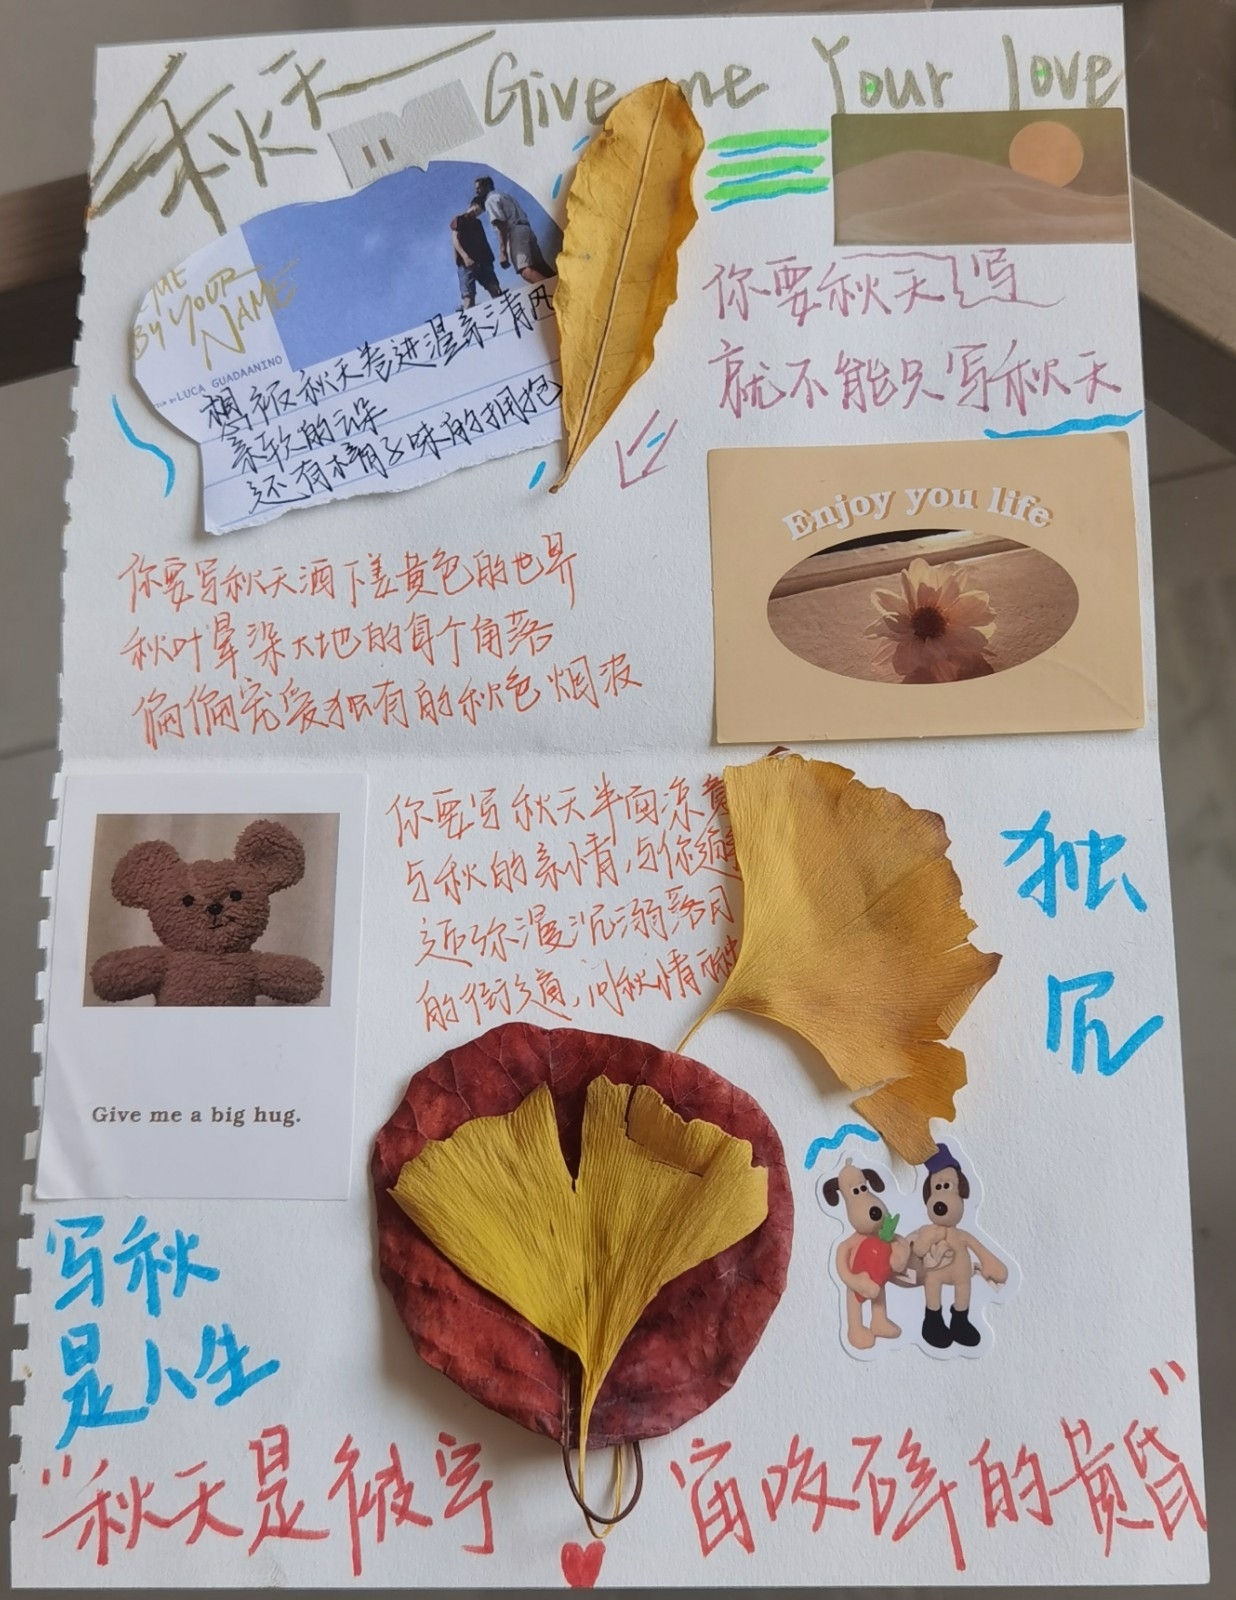 秋天 Give me Your love
ME
BY YOUR
NAME
BY LUCA GUADAANINO
想被秋天卷进温柔清风
亲软的云朵
还有橘子味的拥抱
你要秋天写
就不能只写秋天
Enjoy you life
你要写秋天洒下姜黄色的世界
秋叶晕染大地的每个角落
偏偏宠爱独有的秋色烟波
你要写秋天半面凉意
与秋的亲情,与你
近弥漫沉溺落日
的街道,问秋情
Give me a big hug.
独
写秋
是人生
“秋天是被宇宙咬碎的黄昏”